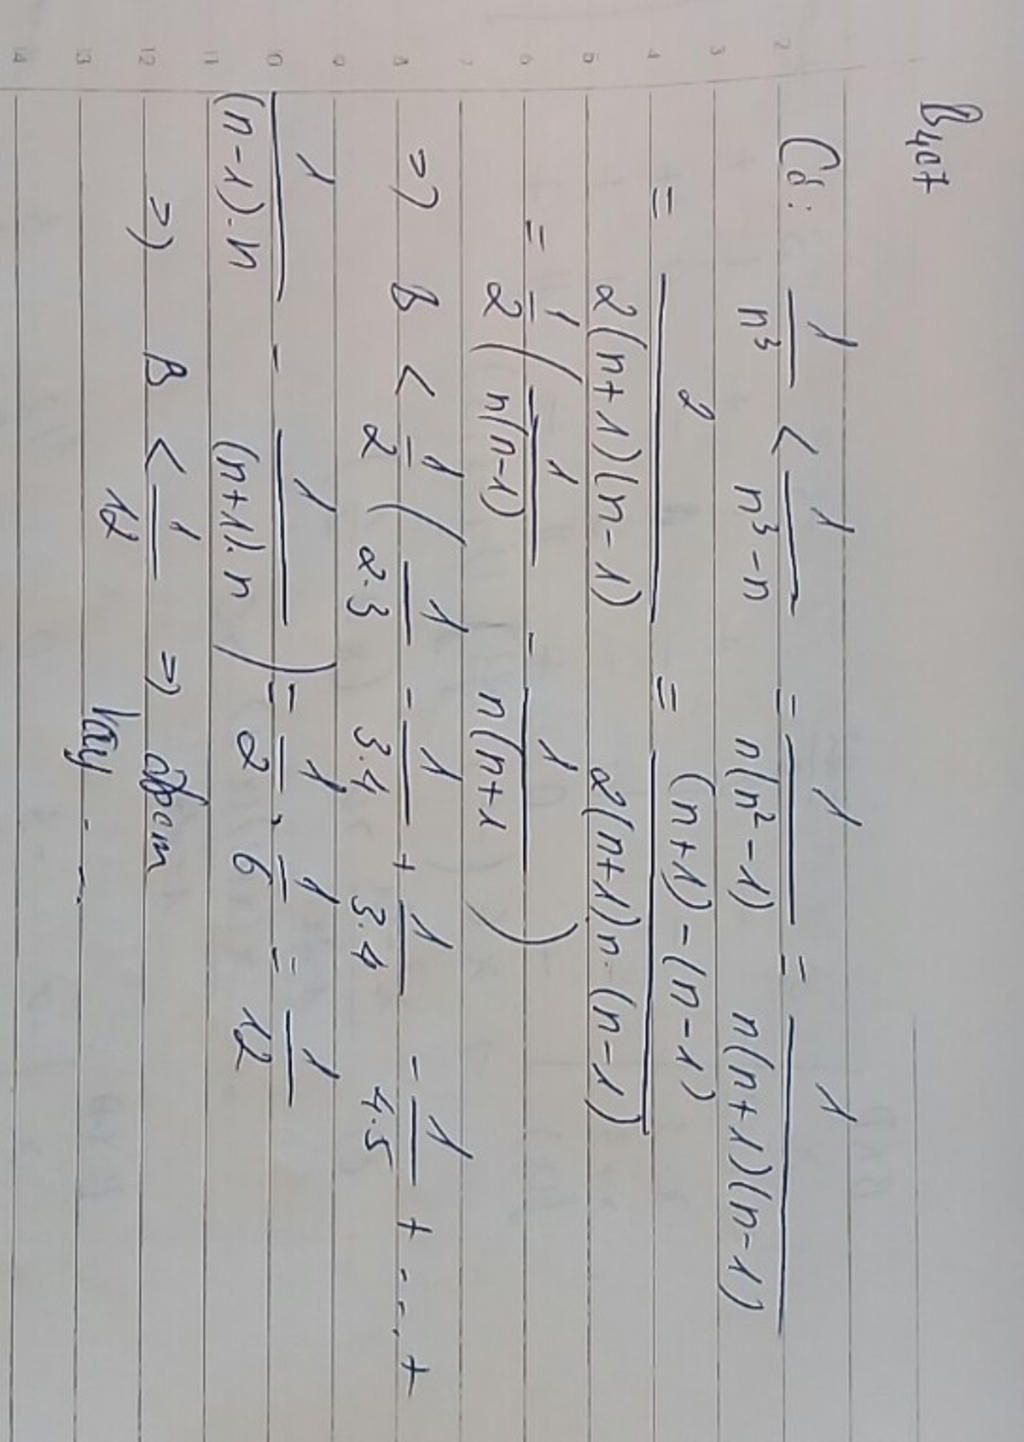 B407
Có: 1/n³ < 1/(n³-n) = 1/(n(n²-1)) = 1/(n(n+1)(n-1))
= 2/(2(n+1)(n-1)) = ((n+1)-(n-1))/(2(n+1)n.(n-1))
= 1/2 ( 1/(n(n-1)) - 1/(n(n+1 )
=> B < 1/2 ( 1/(2.3) - 1/(3.4) + 1/(3.4) - 1/(4.5) + ... +
1/((n-1).n) - 1/((n+1).n) ) = 1/2 . 1/6 = 1/12
=> B < 1/12 => đpcm